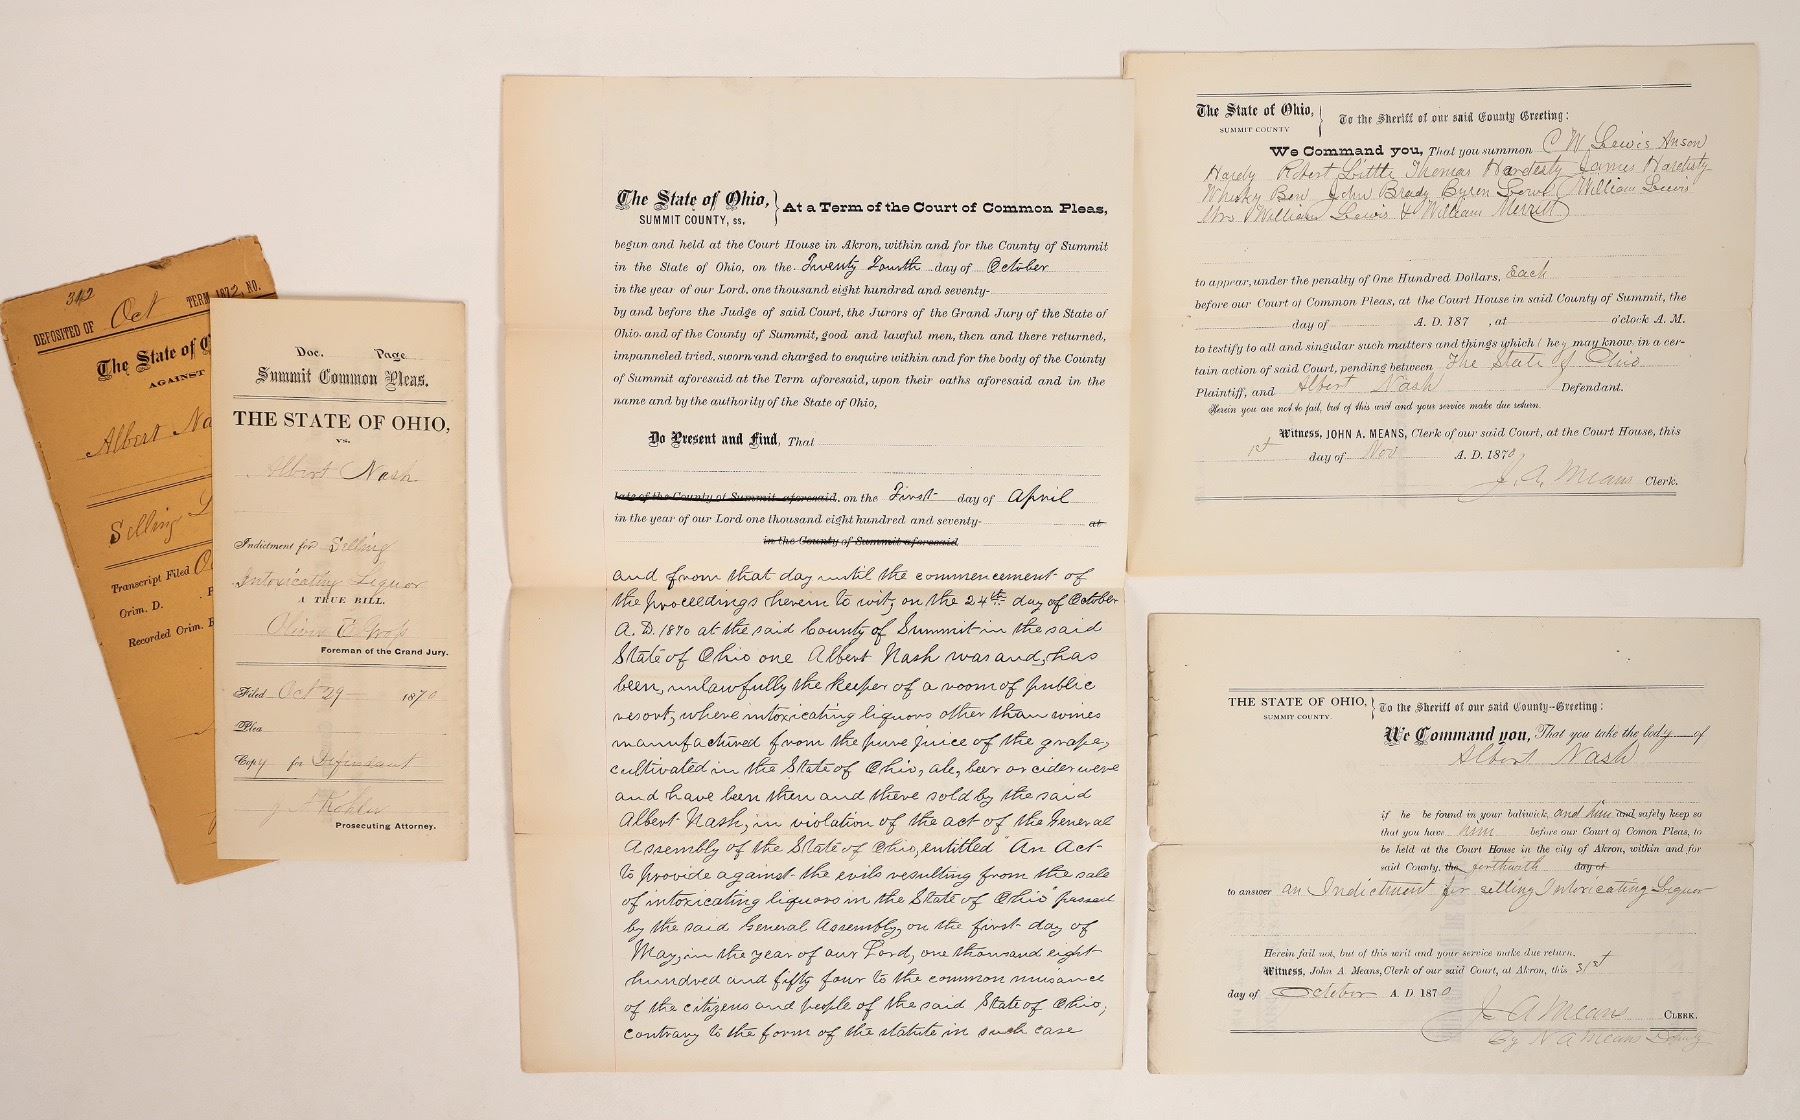 342
DEPOSITED OF Oct TERM 1872, NO.
The State of O
AGAINST
Albert Na
Selling
Transcript Filed O
Crim. D.
Recorded Crim. R
Doc. Page
Summit Common Pleas.
THE STATE OF OHIO,
vs.
Albert Nash
Indictment for Selling
Intoxicating Liquor
A TRUE BILL.
Oliver E
Foreman of the Grand Jury.
Filed Oct 29 1870
Plea
Copy for Defendant
Kohler
Prosecuting Attorney.
The State of Ohio, } At a Term of the Court of Common Pleas,
SUMMIT COUNTY, ss.
begun and held at the Court House in Akron, within and for the County of Summit
in the State of Ohio, on the Twenty Fourth day of October
in the year of our Lord, one thousand eight hundred and seventy-
by and before the Judge of said Court, the Jurors of the Grand Jury of the State of
Ohio, and of the County of Summit, good and lawful men, then and there returned,
impanneled tried, sworn and charged to enquire within and for the body of the County
of Summit aforesaid at the Term aforesaid, upon their oaths aforesaid and in the
name and by the authority of the State of Ohio,
Do Present and Find, That
late of the County of Summit aforesaid, on the First day of April
in the year of our Lord one thousand eight hundred and seventy- at
in the County of Summit aforesaid
and from that day until the commencement of
the proceedings herein to wit, on the 24th day of October
A. D. 1870 at the said County of Summit in the said
State of Ohio one Albert Nash was and, has
been, unlawfully the keeper of a room of public
resort, where intoxicating liquors other than wines
manufactured from the pure juice of the grape,
cultivated in the State of Ohio, ale, beer or cider were
and have been then and there sold by the said
Albert Nash, in violation of the act of the General
Assembly of the State of Ohio, entitled "An Act
to provide against the evils resulting from the sale
of intoxicating liquors in the State of Ohio" passed
by the said General Assembly, on the first day of
May, in the year of our Lord, one thousand eight
hundred and fifty four to the common nuisance
of the citizens and people of the said State of Ohio,
contrary to the form of the statute in such case
The State of Ohio, } To the Sheriff of our said County Greeting:
SUMMIT COUNTY
We Command you, That you summon C W Lewis Anson
Hardy Robert Little Thomas Hardesty James Hardisty
Whisky Ben John Brady Byren Lowe William Lewis
Mrs William Lewis & William Merritt
to appear, under the penalty of One Hundred Dollars, Each
before our Court of Common Pleas, at the Court House in said County of Summit, the
day of A. D. 187 , at o'clock A. M.
to testify to all and singular such matters and things which they may know, in a cer-
tain action of said Court, pending between The State of Ohio
Plaintiff, and Albert Nash Defendant.
Herein you are not to fail, but of this writ and your service make due return.
Witness, JOHN A. MEANS, Clerk of our said Court, at the Court House, this
1st day of Nov A. D. 1870
J. A. Means Clerk.
THE STATE OF OHIO, } To the Sheriff of our said County--Greeting:
SUMMIT COUNTY.
We Command you, That you take the body of
Albert Nash
if he be found in your bailiwick, and him and safely keep so
that you have him before our Court of Comon Pleas, to
be held at the Court House in the city of Akron, within and for
said County, the forthwith day of
to answer an Indictment for selling Intoxicating Liquor
Herein fail not, but of this writ and your service make due return.
Witness, John A. Means, Clerk of our said Court, at Akron, this 31st
day of October A. D. 1870
J A Means CLERK.
By N A Means Deputy